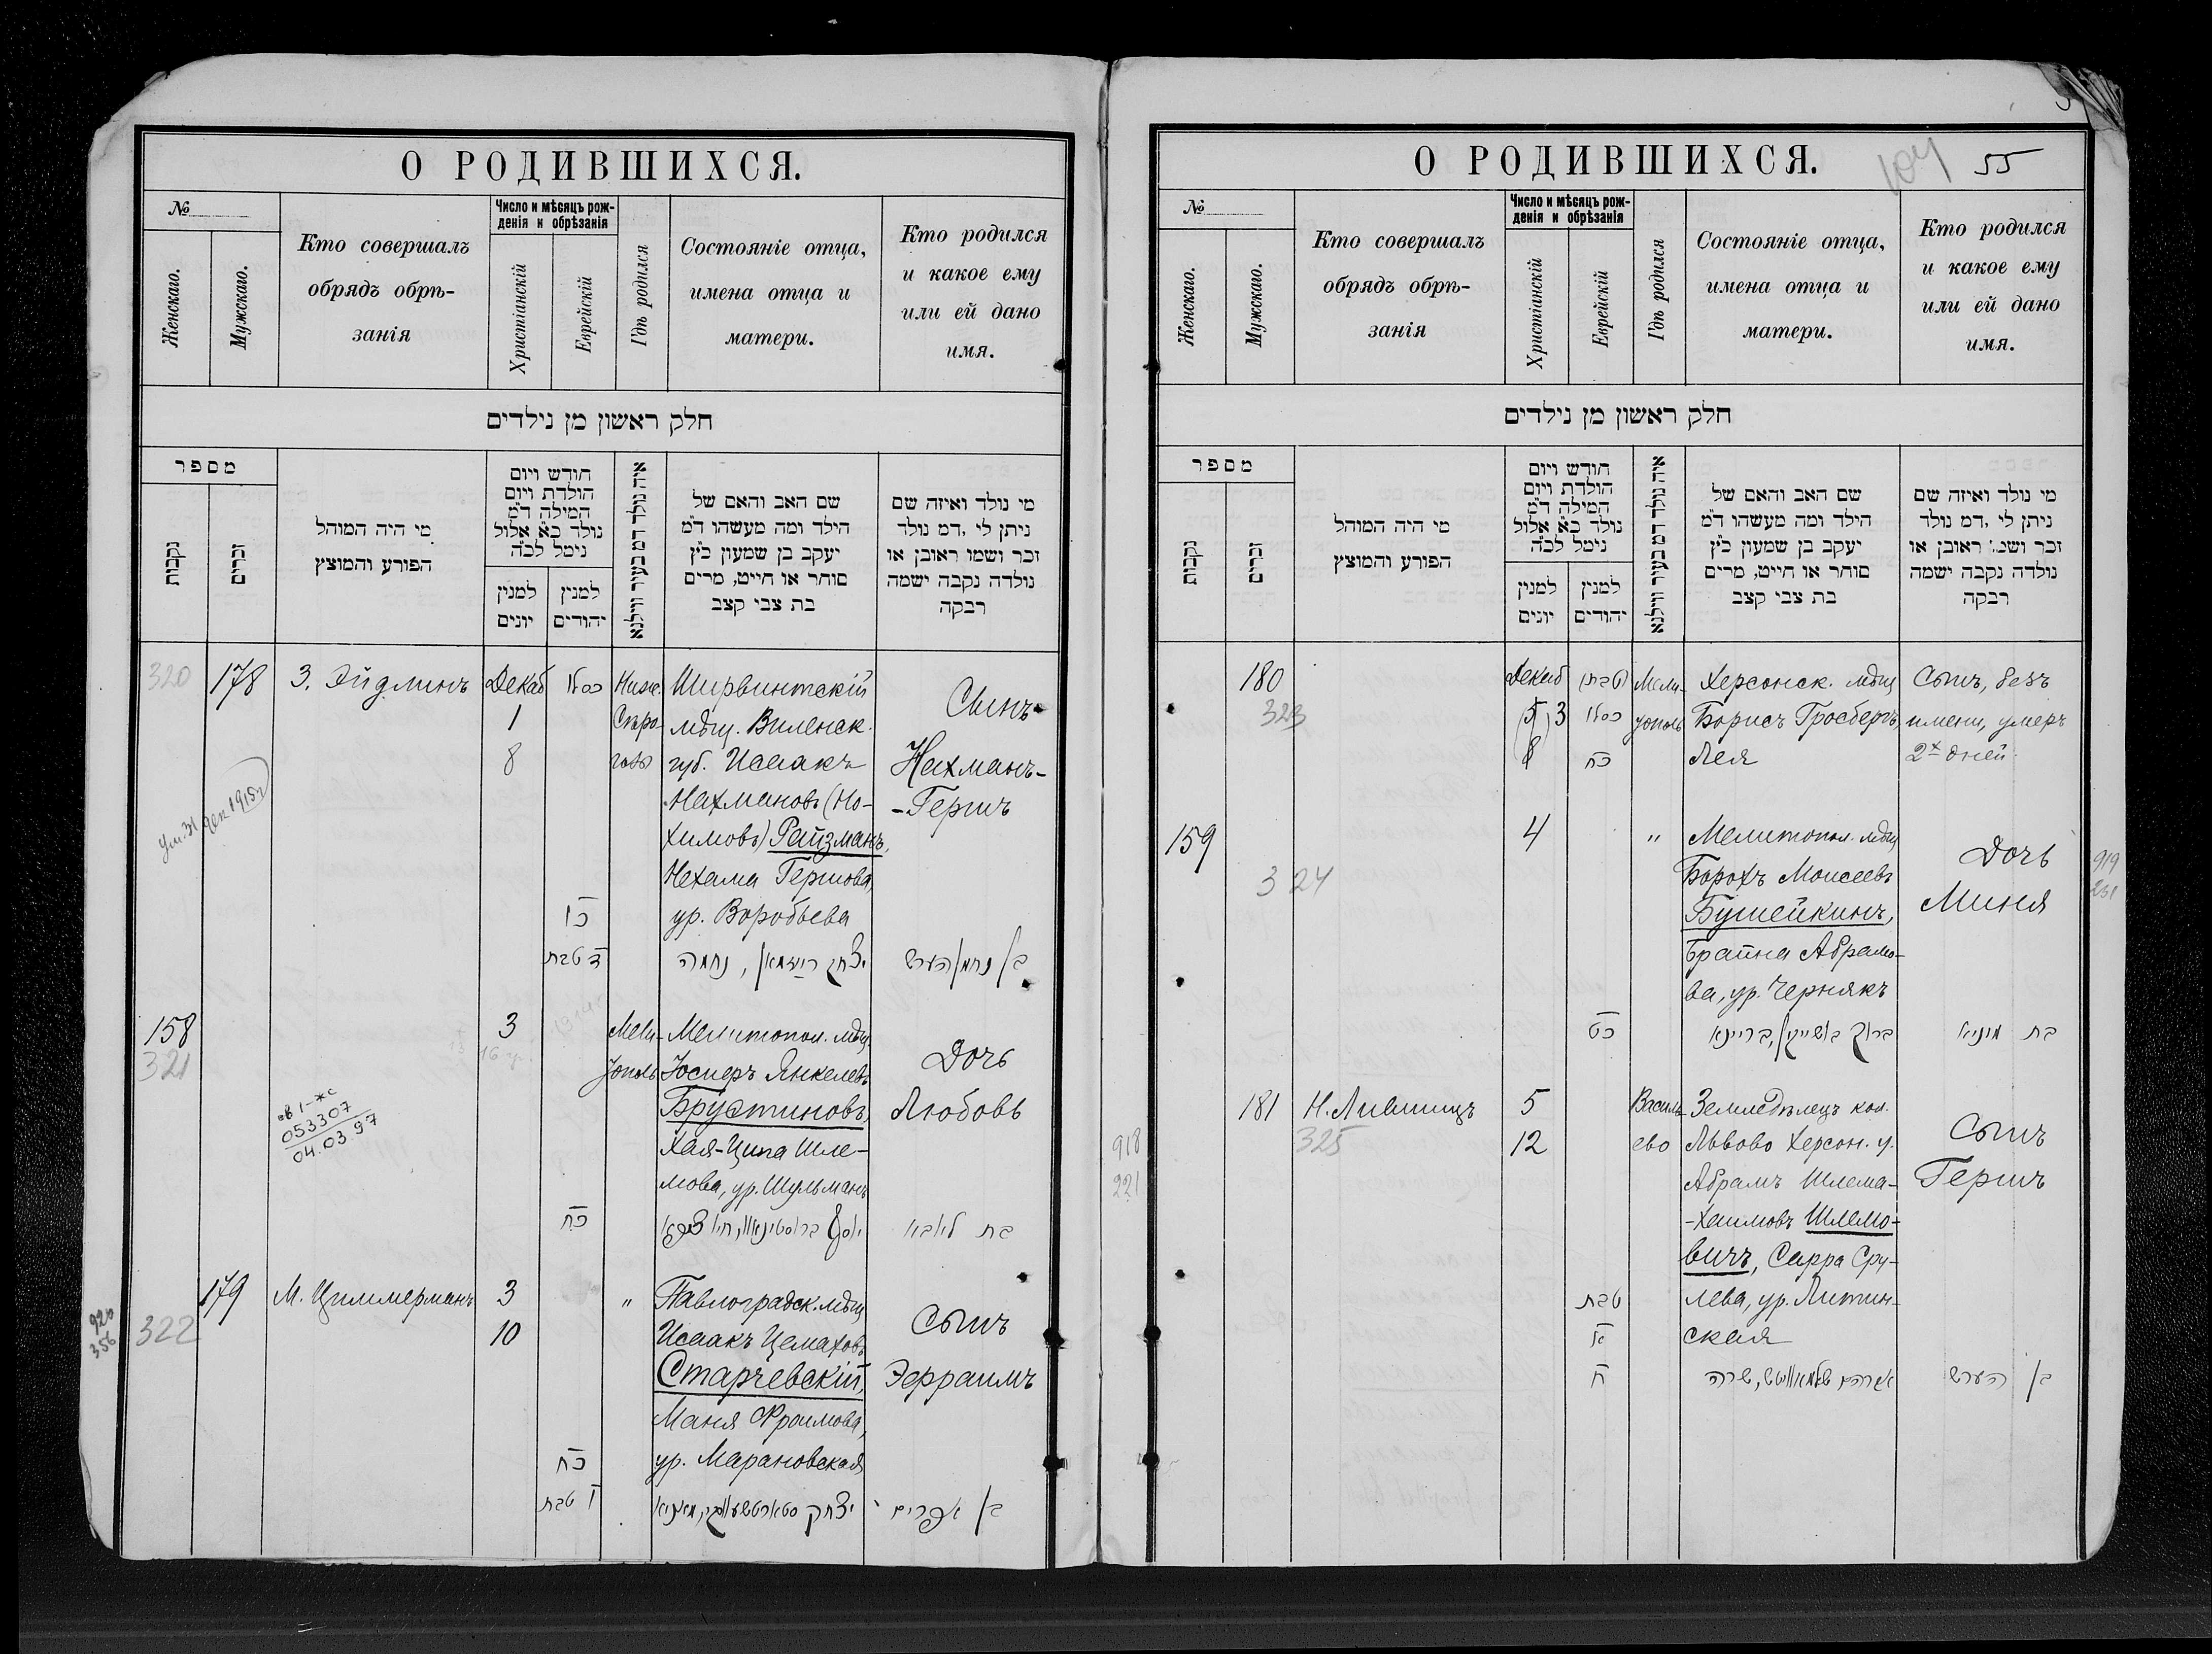 О РОДИВШИХСЯ.
№
Женскаго.
Мужскаго.
Кто совершалъ
обрядъ обрѣ-
занія
Число и мѣсяцъ рож-
денія и обрѣзанія
Христіанскій
Еврейскій
Гдѣ родился
Состояніе отца,
имена отца и
матери.
Кто родился
и какое ему
или ей дано
имя.
חלק ראשון מן נילדים
מספר
נקבות
זכרים
מי היה המוהל
הפורע והמוצץ
חודש ויום
הולדת ויום
המילה ד״מ
נולד כ״א אלול
נימל לכ״ה
למנין
יונים
למנין
יהודים
איה נולד דמ בעיר ווילנא
שם האב והאם של
הילד ומה מעשהו ד״מ
יעקב בן שמעון כ״ץ
סוחר או חייט, מרים
בת צבי קצב
מי נולד ואיזה שם
ניתן לי ,דמ נולד
זכר ושמו ראובן או
נולדה נקבה ישמה
רבקה
320
178
З. Эйдлинъ
Декаб
1
8
כסלו
כו
ד טבת
Ниж.
Сѣро-
гозы
Ширвинтскій
мѣщ. Виленск.
губ. Исаакъ
Нахмановъ (Но-
химовъ) Райзманъ,
Нехама Гершова,
ур. Воробьева
יצחק רייזמאן, נחמה
Сынъ
Нахманъ-
-Гершъ
בן נחמן הערש
Ум. 31 дек 1915 г
158
321
3
כח
Мели-
тополь
Мелитопол. мѣщ.
Іосперъ Янкелевъ
Брустиновъ,
Хая-Ципа Шле-
мова, ур. Шульманъ
Дочь
Любовь
בת ליובא
053307
04.03.97
179
322
М. Циммерманъ
3
10
כח
ו טבת
"
Павлоградск. мѣщ
Исаакъ Цемаховъ
Старчевскій,
Маня Фроимова,
ур. Марановская
יצחק סטארטשעווסקי, מאניא
Сынъ
Эфраимъ
בן אפרים
920
356
О РОДИВШИХСЯ.
104
55
№
Женскаго.
Мужскаго.
Кто совершалъ
обрядъ обрѣ-
занія
Число и мѣсяцъ рож-
денія и обрѣзанія
Христіанскій
Еврейскій
Гдѣ родился
Состояніе отца,
имена отца и
матери.
Кто родился
и какое ему
или ей дано
имя.
חלק ראשון מן נילדים
מספר
נקבות
זכרים
מי היה המוהל
הפורע והמוצץ
חודש ויום
הולדת ויום
המילה ד״מ
נולד כ״א אלול
נימל לכ״ה
למנין
יונים
למנין
יהודים
איה נולד דמ בעיר ווילנא
שם האב והאם של
הילד ומה מעשהו ד״מ
יעקב בן שמעון כ״ץ
סוחר או חייט, מרים
בת צבי קצב
מי נולד ואיזה שם
ניתן לי ,דמ נולד
זכר ושמ׳ ראובן או
נולדה נקבה ישמה
רבקה
180
323
Декаб
(5) 3
(טבת)
כסלו
כח
Мели-
тополь
Херсонск. мѣщ
Борисъ Гросбергъ,
Лея
Сынъ, безъ
имени, умеръ
2х дней.
159
324
4
כט
"
Мелитопол. мѣщ
Борохъ Моисеевъ
Бушейкинъ,
Брайна Абрамо-
ва, ур. Чернякъ
ברוך בושייקין, בריינא
Дочь
Миня
בת מיניא
919
231
181
325
Н. Лившицъ
5
12
טבת
א
ח
Василь-
ево
Земледѣлецъ кол.
Львово Херсон. у.
Абрамъ Шлема-
-Хаимовъ Шлемо-
вичъ, Сарра Сру-
лева, ур. Литин-
ская
אברהם שלמאוויטש, שרה
Сынъ
Гершъ
בן הערש
918
221